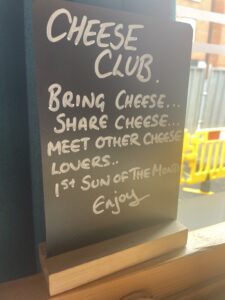 CHEESE
CLUB.
BRING CHEESE...
SHARE CHEESE...
MEET OTHER CHEESE
LOVERS..
1ST SUN OF THE MONTH
Enjoy